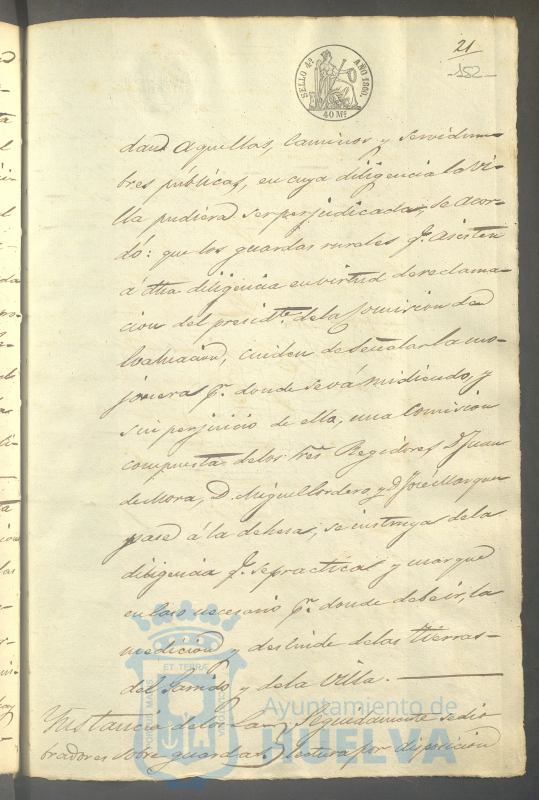 21
152
SELLO 4º AÑO 1860.
40 Ms
dan aquellas, caminos y servidum-
bres públicas, en cuya diligencia la vi-
lla pudiera ser perjudicada, se acor-
dó: que los guardas rurales q.e asisten
á dha diligencia en virtud de reclama-
cion del presid.te de la Comision de
Evaluacion, cuiden de señalar la mo-
jonera p.r donde se vá midiendo, y
sin perjuicio de ella, una Comision
compuesta de los tres Regidores D. Juan
de Mora, D. Miguel Cordero, y D. José Marquez
pase á la dehesa, se instruya de la
diligencia q.e se practica y marque
en caso necesario p.r donde debe ir, la
medicion y deslinde de las tierras
del Partido y de la Villa.
Instancia de los La- Seguidamente se dio
bradores sobre guardas. lectura por disposicion
PORTUS MARIS ET TERRÆ CUSTODIA
Ayuntamiento de
HUELVA